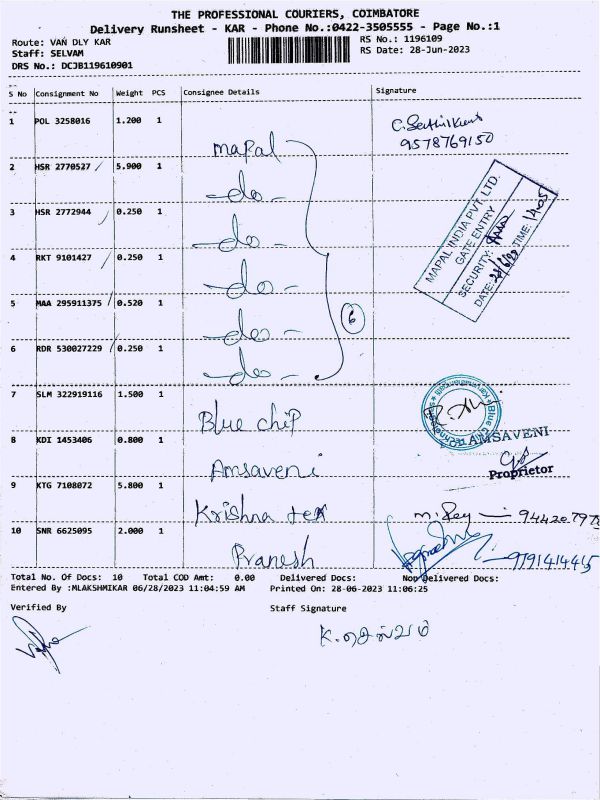 THE PROFESSIONAL COURIERS, COIMBATORE
Delivery Runsheet - KAR - Phone No.:0422-3505555 - Page No.:1
Route: VAN DLY KAR
RS No.: 1196109
Staff: SELVAM
RS Date: 28-Jun-2023
DRS No.: DCJB119610901
S No Consignment No Weight PCS Consignee Details Signature
1 POL 3258016 1.200 1 mapal
9578769150
2 HSR 2770527 5.900 1 -do-
3 HSR 2772944 0.250 1 -do-
4 RKT 9101427 0.250 1 -do-
5 MAA 295911375 0.520 1 -do-
6 RDR 530027229 0.250 1 -do-
6
MAPAL INDIA PVT. LTD.
GATE ENTRY
SECURITY:
DATE: TIME:
7 SLM 322919116 1.500 1 Blue chip
8 KDI 1453406 0.800 1 Amsaveni
AMSAVENI
Proprietor
9 KTG 7108072 5.800 1 Krishna tex
10 SNR 6625095 2.000 1 Pranesh
Total No. Of Docs: 10 Total COD Amt: 0.00 Delivered Docs: Non Delivered Docs:
Entered By :MLAKSHMIKAR 06/28/2023 11:04:59 AM Printed On: 28-06-2023 11:06:25
Verified By Staff Signature
K. செல்வம்